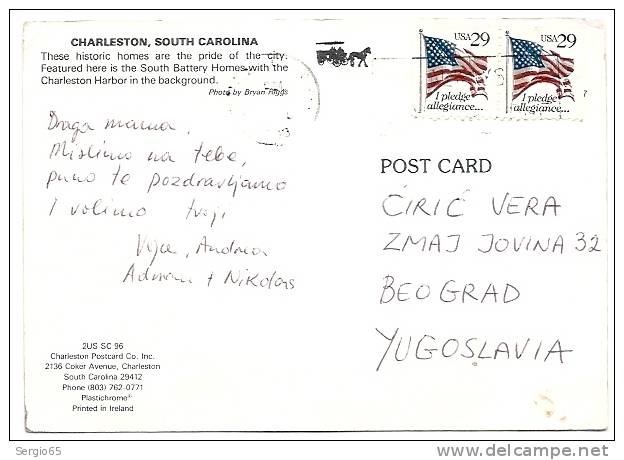 CHARLESTON, SOUTH CAROLINA
These historic homes are the pride of the city.
Featured here is the South Battery Homes with the
Charleston Harbor in the background.
Photo by Bryan Riggs
USA 29
I pledge
allegiance...
USA 29
I pledge
allegiance...
Draga mama,
Mislimo na tebe,
puno te pozdravljamo
I volimo tvoji
Andrea
+ Nikolas
POST CARD
ĆIRIĆ VERA
ZMAJ JOVINA 32
BEOGRAD
YUGOSLAVIA
2US SC 96
Charleston Postcard Co. Inc.
2136 Coker Avenue, Charleston
South Carolina 29412
Phone (803) 762-0771
Plastichrome®
Printed in Ireland
Sergio65
delcampe.net